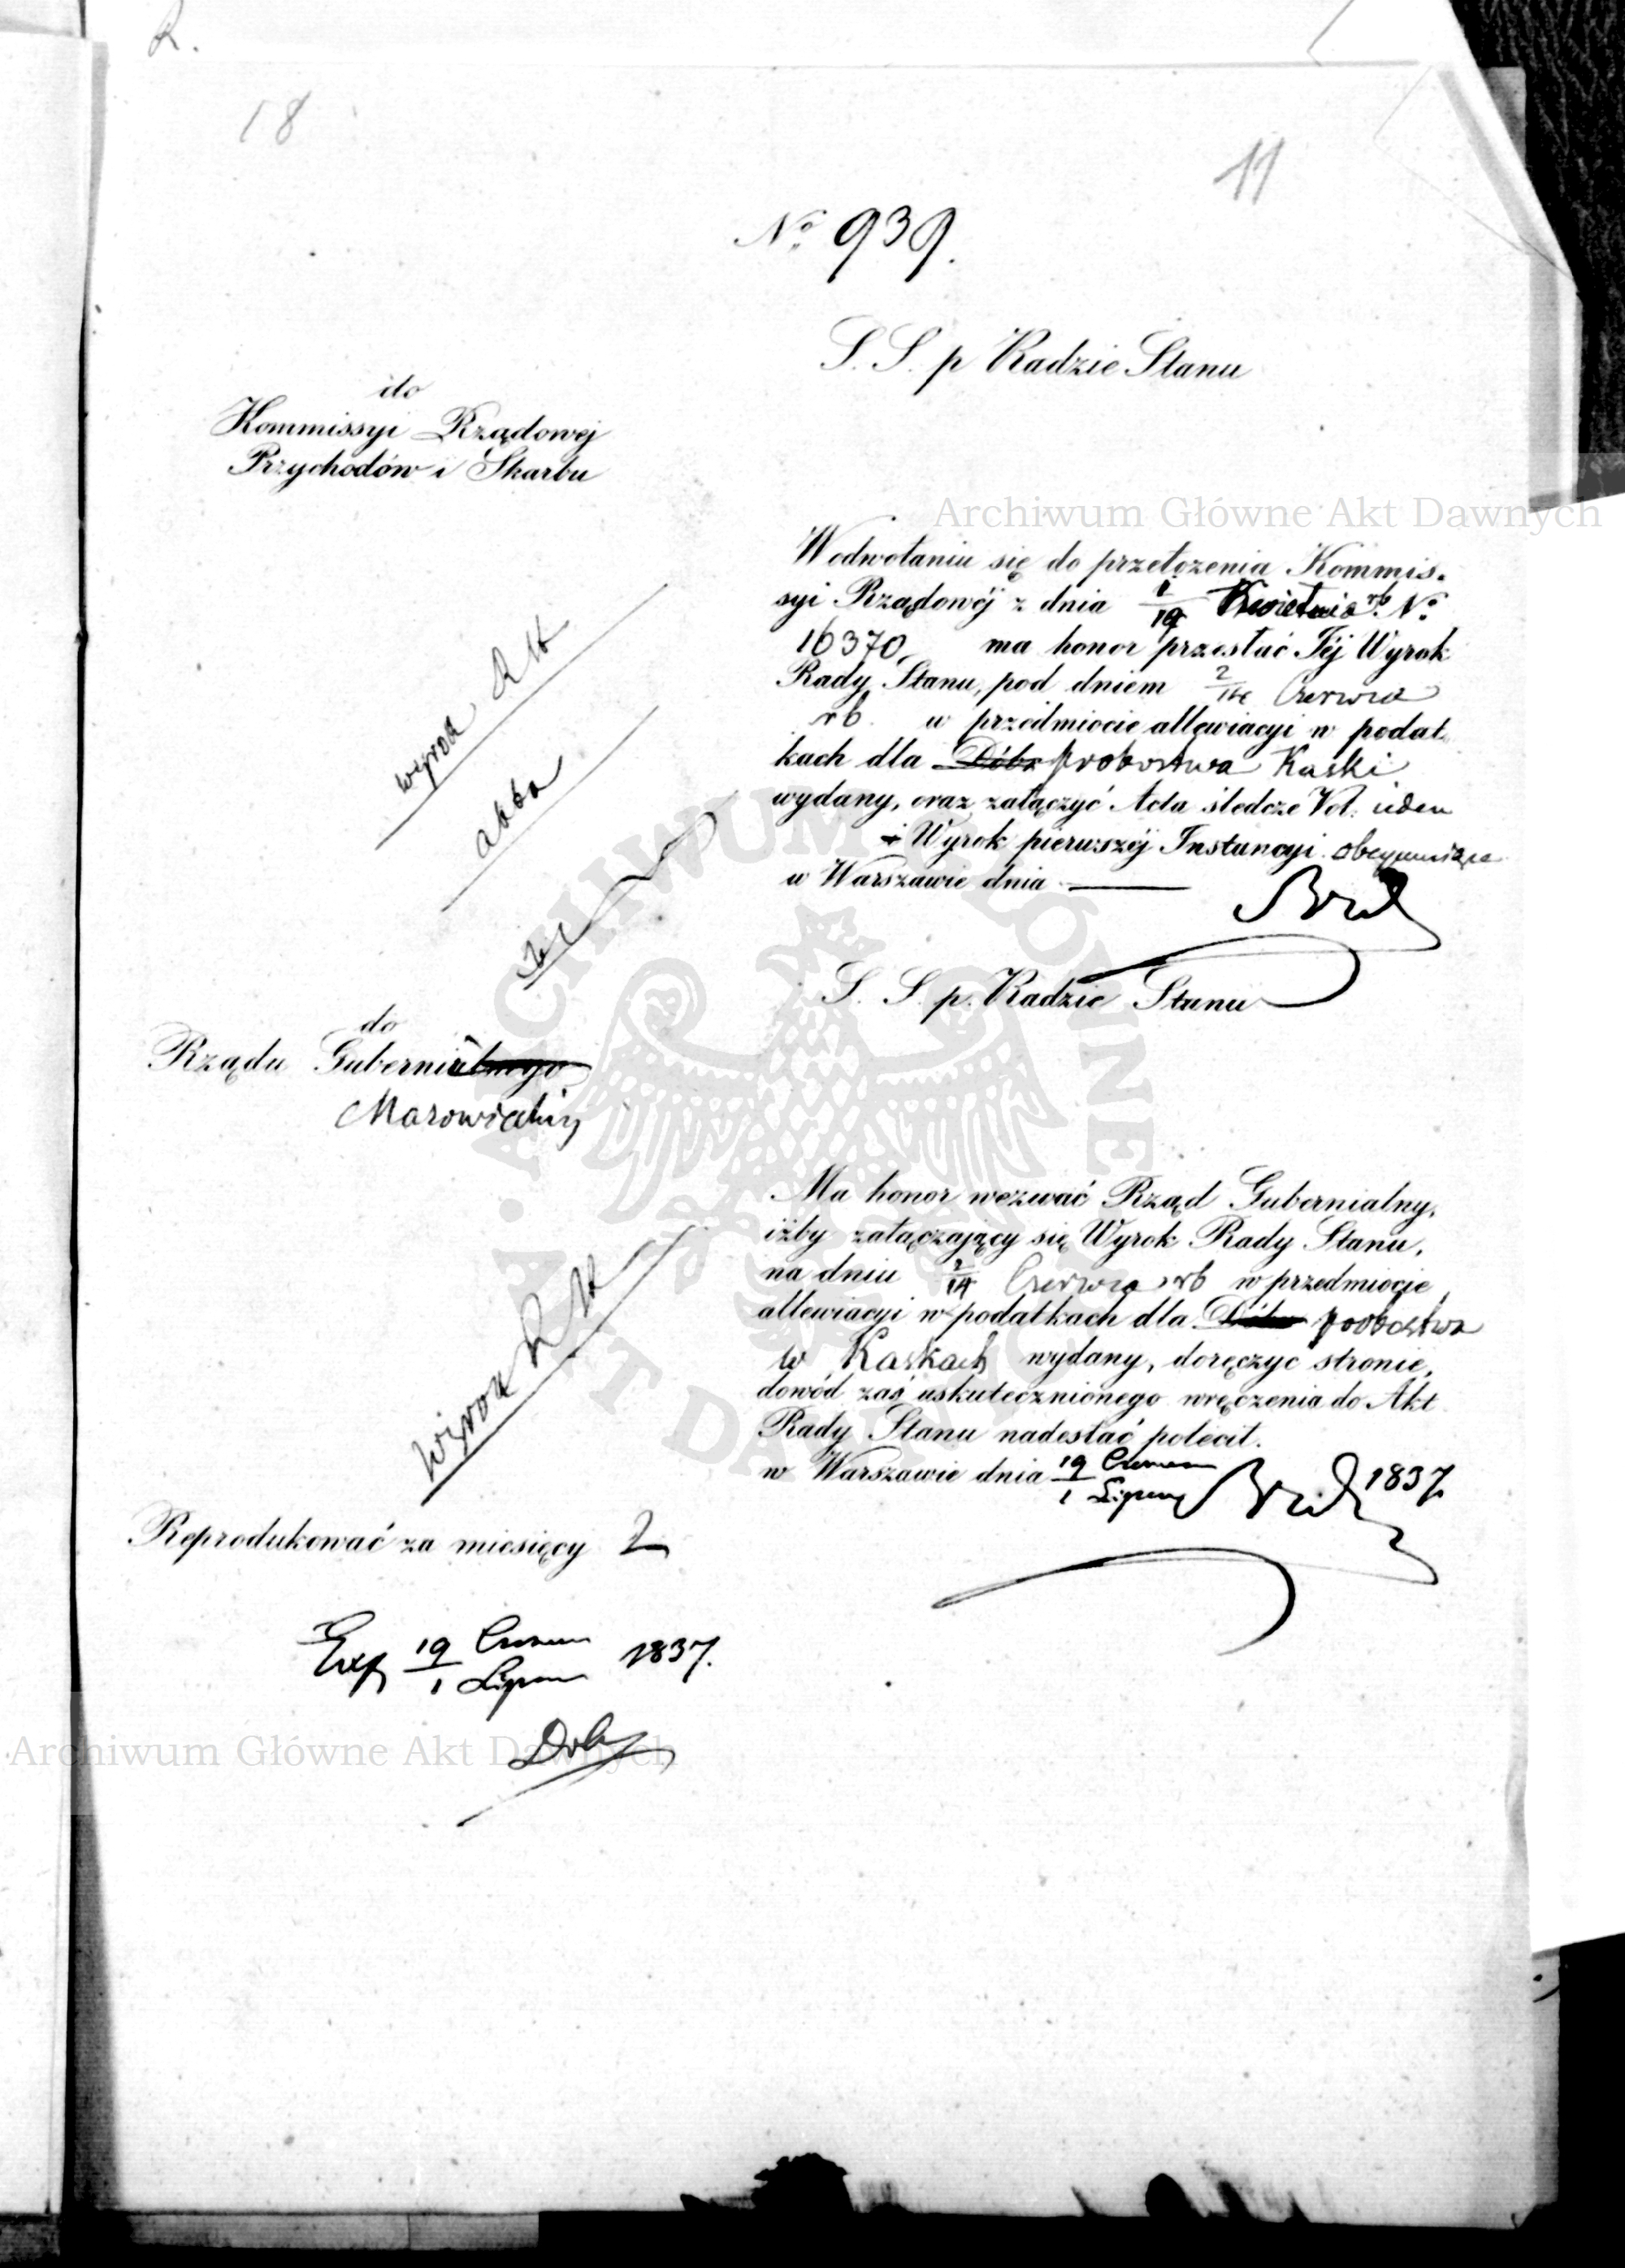 R.
18
11
No 939.
S. S. p Radzie Stanu
do
Kommissyi Rządowej
Przychodów i Skarbu
Archiwum Główne Akt Dawnych
W odwołaniu się do przełożenia Kommis-
syi Rządowéj z dnia 7/19 Kwietnia rb. No
16370, ma honor przesłać Téj Wyrok
Rady Stanu, pod dniem 2/14 Czerwca
rb. w przedmiocie allewiacyi w podat
kach dla Dóbr probostwa Kaski
wydany, oraz załączyć Acta śledcze Vol. ieden
i Wyrok pierwszéj Instancyi obeymuiące
w Warszawie dnia
wyrok R St
akta
S. S. p. Radzie Stanu
do
Rządu Gubernialnego
Mazowieckiy
Ma honor wezwać Rząd Gubernialny,
iżby załączający się Wyrok Rady Stanu,
na dniu 2/14 Czerwca rb w przedmiocie
allewiacyi w podatkach dla Dóbr probostwa
w Kaskach wydany, doręczyć stronie,
dowód zaś uskutecznionego wręczenia do Akt
Rady Stanu nadesłać polecił.
w Warszawie dnia 19 Czerwca / 1 Lipca 1837
Wyrok R St
Reprodukować za miesięcy 2
Exp 19 Czerwca / 1 Lipca 1837.
Archiwum Główne Akt Dawnych
ARCHIWUM GŁÓWNE AKT DAWNYCH